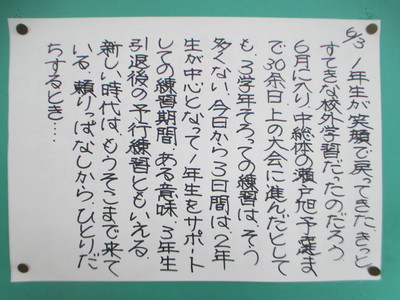 6/3 1年生が笑顔で戻ってきた。きっと
すてきな校外学習だったのだろう
6月に入り、中総体の瀬戸旭予選ま
で30余日。上の大会に進んだとして
も、3学年そろっての練習は、そう
多くない。今日から3日間は、2年
生が中心となって1年生をサポート
しての練習期間。ある意味、3年生
引退後の予行練習ともいえる。
新しい時代は、もうそこまで来て
いる。頼りっぱなしから、ひとりだ
ちするとき…